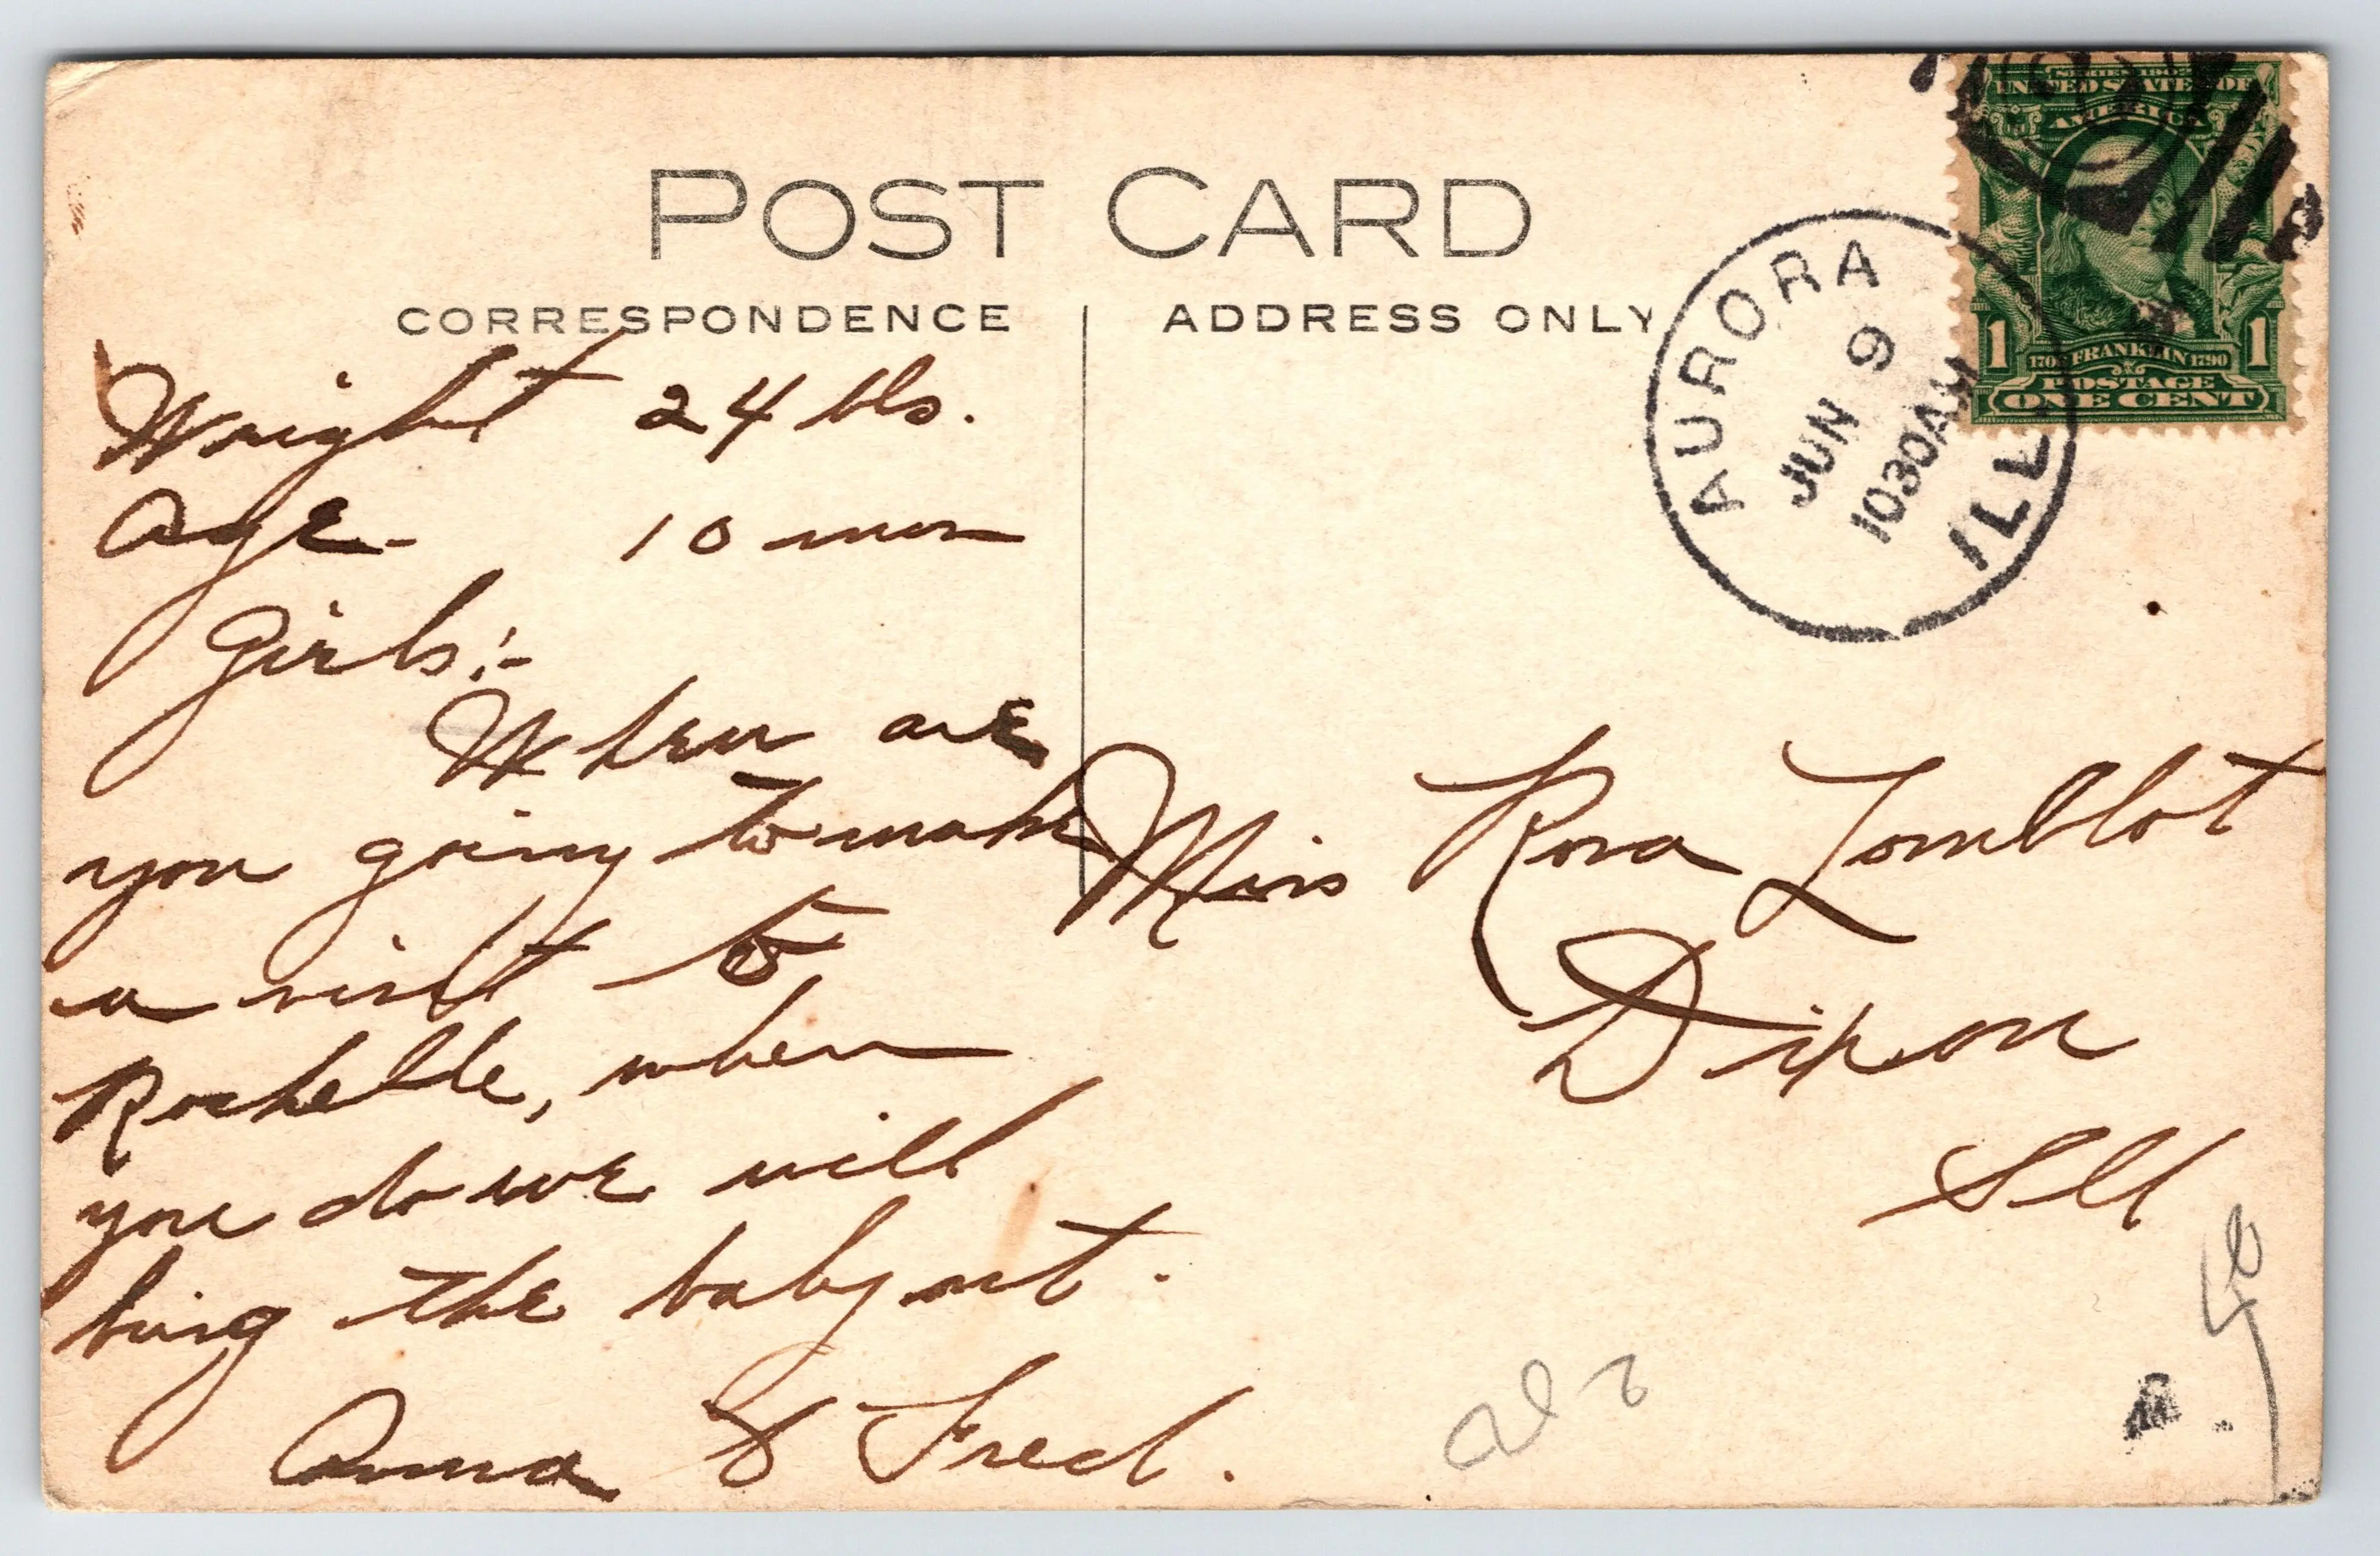 POST CARD
CORRESPONDENCE
ADDRESS ONLY
SERIES 1902
UNITED STATES OF
AMERICA
1 1706 FRANKLIN 1790 1
POSTAGE
ONE CENT
AURORA
JUN 9
1030AM
ILL.
Weight 24 lbs.
Age - 10 mon
Girls:-
When are
you going to make
a visit to
Rochelle, when
you do we will
bring the baby out.
Anna & Fred.
Miss Rosa Lomblot
Dixon
Ill